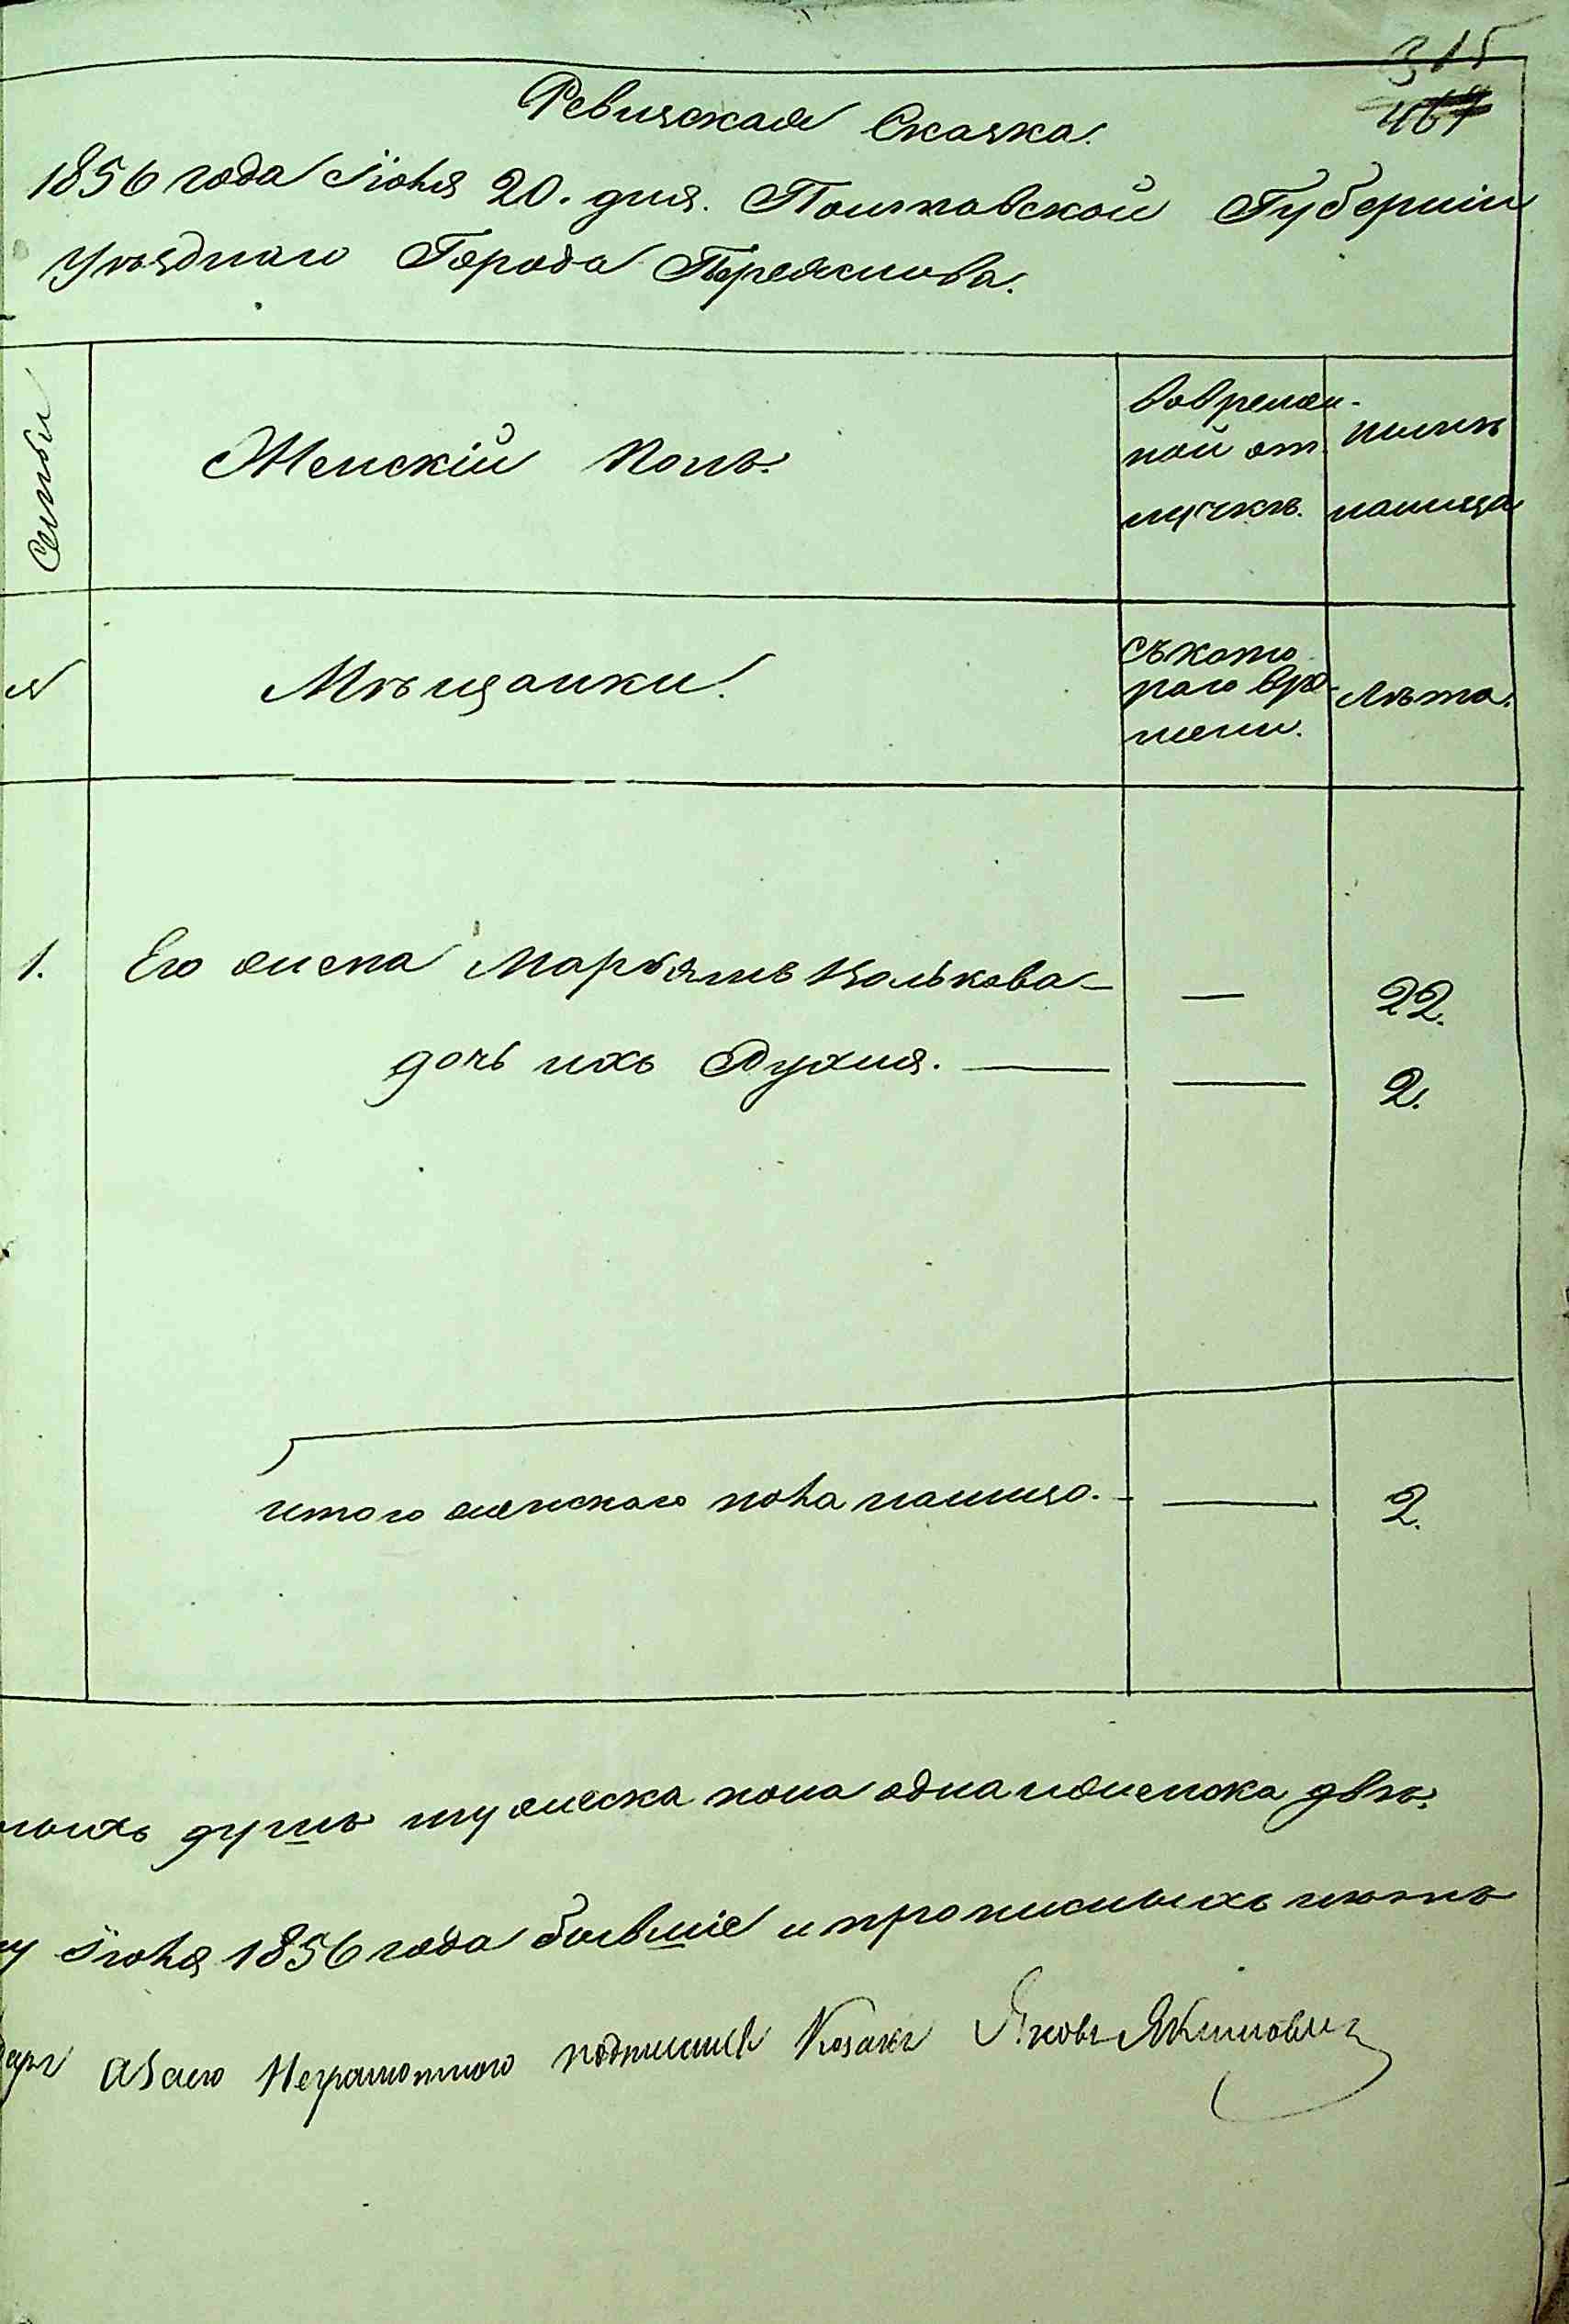 315
467
Ревизская Сказка.
1856 года Іюня 20. дня. Полтавской Губерніи
Уѣзднаго Города Переяслова.
Семьи
Женскій полъ.
Во времен-
ной от
лучкѣ.
нынѣ
налицо
я
Мѣщанки.
Съ кото
раго вре-
мени.
Лѣта.
1. Его жена Марьямъ Волькова — — 22.
дочь ихъ Рухля. — — 2.
Итого женскаго пола налицо. — — 2.
душъ мужеска пола одна и женска двѣ.
Іюня 1856 года бывшіе и прописныхъ нѣтъ
неграмотного подписался Козакъ Яковъ Якимовичъ